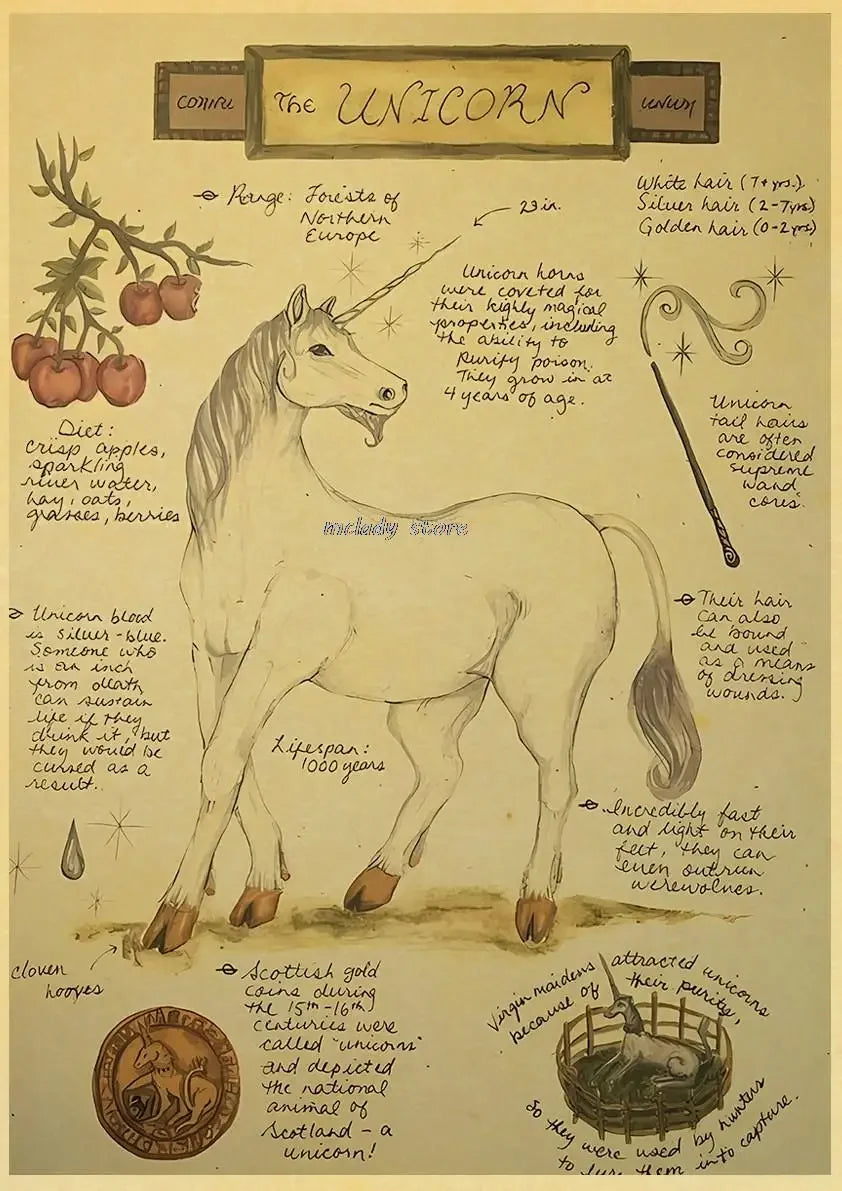 The UNICORN
UNUM
Range: Forests of
Northern
Europe
29 in.
White hair (7+ yrs.)
Silver hair (2-7 yrs)
Golden hair (0-2 yrs)
Unicorn horns
were coveted for
their highly magical
properties, including
the ability to
purify poison.
They grow in at
4 years of age.
Diet:
crisp apples,
sparkling
river water,
hay, oats,
grasses, berries
Unicorn
tail hairs
are often
considered
supreme
wand
cores.
mclady store
Unicorn blood
is silver-blue.
Someone who
is an inch
from death
can sustain
life if they
drink it, but
they would be
cursed as a
result.
Their hair
can also
be bound
and used
as a means
of dressing
wounds.
Lifespan:
1000 years
Incredibly fast
and light on their
feet, they can
even outrun
werewolves.
cloven
hooves
Scottish gold
coins during
the 15th-16th
centuries were
called "unicorns"
and depicted
the national
animal of
Scotland - a
unicorn!
Virgin maidens attracted unicorns
because of their purity,
so they were used by hunters
to lure them into capture.